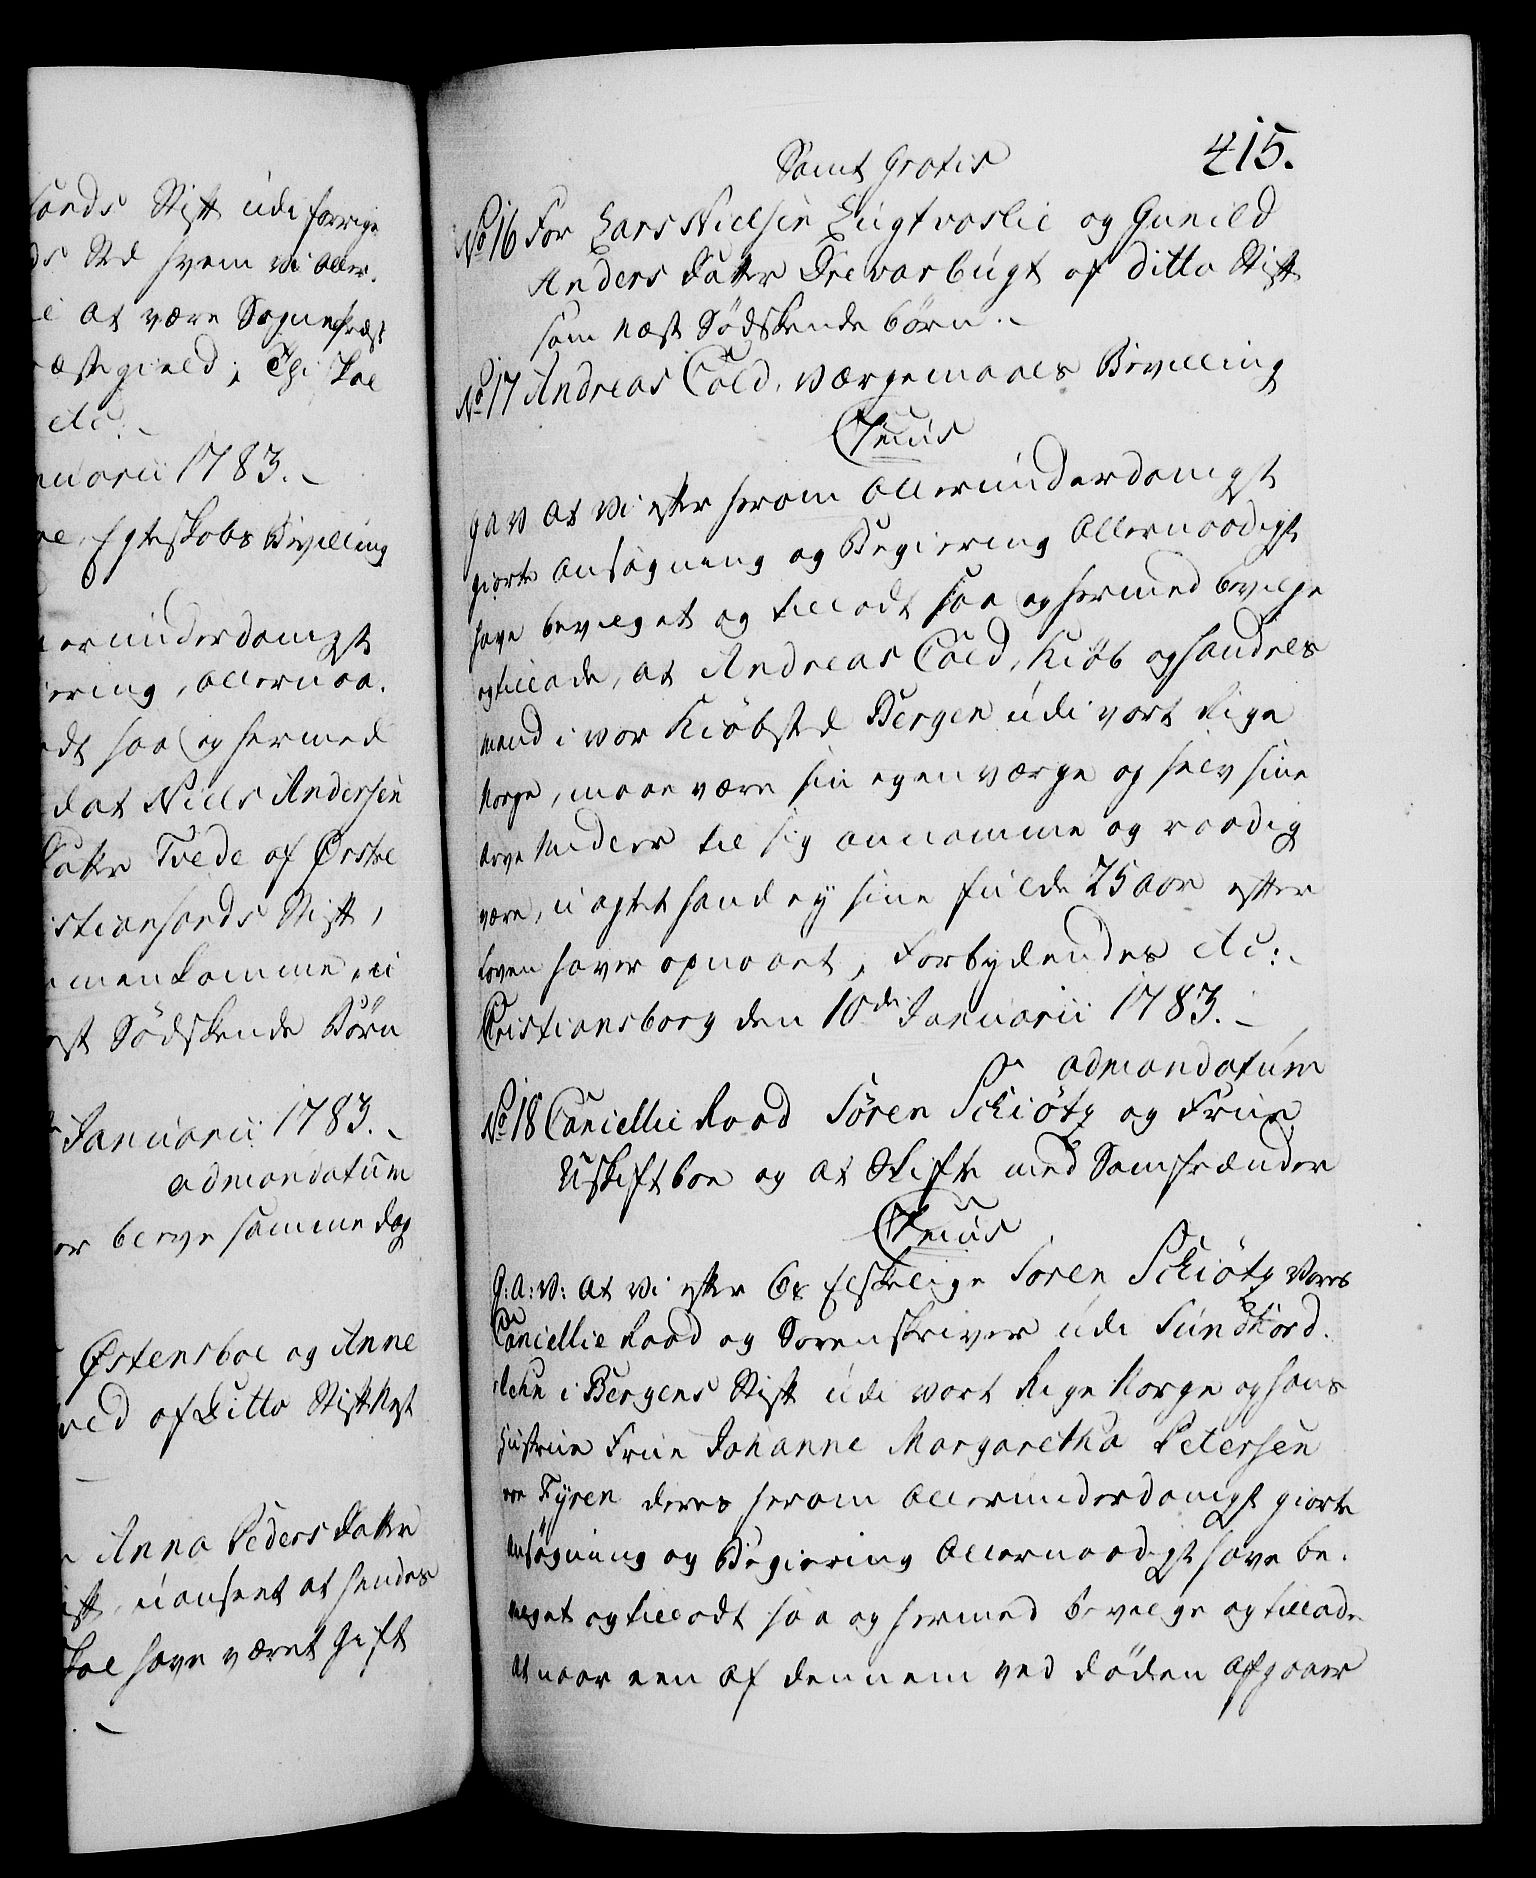 sands Stift udi forrige
ds Sted hvem vi Aller-
e at være Sognepræst
æstegield; Thi skal
etc:
nuarii 1783.
re, Egteskabs Bevilling
erunderdanigst
iering, allernaa-
adt saa og hermed
dat Niels Andersen
Datter Tvede af Østre
istiansands Stift,
mmenkomme, u
est Södskende Börn
Januarii 1783.
ad mandatum
er breve samme Dag
Østensboe og Anne
ved af Ditto Stift Nest
Anna Peders Datter
ift, uanseet at hendes
skal have været Gift
415.
Samt Gratis
No 16 For Lars Nielsen Lugtvaslie og Gunild
Anders Datter Drevarbugt af Ditto Stift
som næst Södskende börn.
No 17 Andreas Cold, værgemaals Bevilling
C7mus
G A V At Vi efter herom Allerunderdanigst
giorte Ansögning og Begiering Allernaadigst
have bevilget og tilladt saa og hermed bevilge
og tillade, at Andreas Cold, Kiöb og Handels
mand i vor Kiöbsted Bergen udi vort Rige
Norge, maae være sin egen værge og selv sine
Arve Midler til sig annamme og raadig
være, uagtet hand ey sine fulde 25 aar efter
loven haver opnaaet, Forbydendes etc:
Christiansborg den 10de Januarii 1783.
ad mandatum
No 18 Cancellie Raad Sören Schiötz og Frue
Uskift boe og at Skifte med Samfrænder
C7mus
G: A: V: At Vi efter Os Elskelige Sören Schiötz Vores
Cancellie Raad og Sorenskriver udi Sundhord-
lehn i Bergens Stift udi vort Rige Norge og hans
Hustrue Frue Johanne Margaretha Petersen
Fyren deres herom allerunderdanigst giorte
Ansögning og Begiering Allernaadigst have be-
vilget og tilladt saa og hermed bevilge og tillade
at naar een af dennem ved Döden Afgaaer